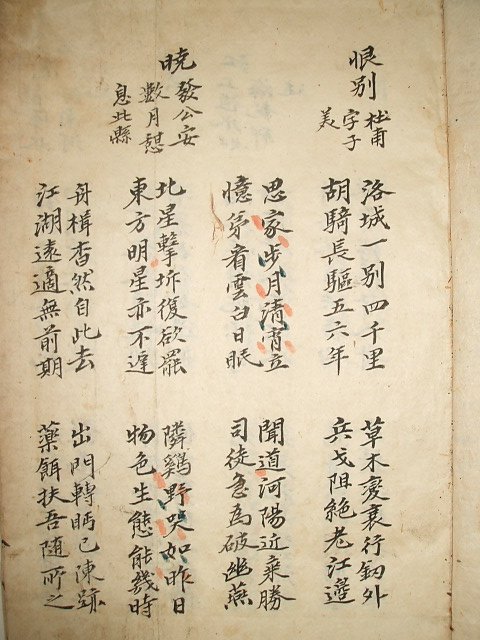 恨別
杜甫
字子
美
洛城一別四千里
胡騎長驅五六年
草木變衰行釰外
兵戈阻絶老江邊
思家步月清宵立
憶苐看雲白日眠
聞道河陽近乗勝
司徒急為破幽燕
曉發公安
數月憇
息此縣
北星擊坼復欲罷
東方明星亦不遲
隣鷄野哭如昨日
物色生態能幾時
舟楫杳然自此去
江湖遠適無前期
出門轉眄已陳跡
藥餌扶吾随所之